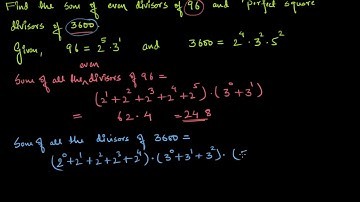 Find the sum of even divisors of 96 and perfect square
divisors of 3600
Given, 96 = 2^5 · 3^1 and 3600 = 2^4 · 3^2 · 5^2
even
Sum of all the divisors of 96 =
(2^1 + 2^2 + 2^3 + 2^4 + 2^5) · (3^0 + 3^1)
= 62 · 4 = 248
Sum of all the divisors of 3600 =
(2^0 + 2^1 + 2^2 + 2^3 + 2^4) · (3^0 + 3^1 + 3^2) · (